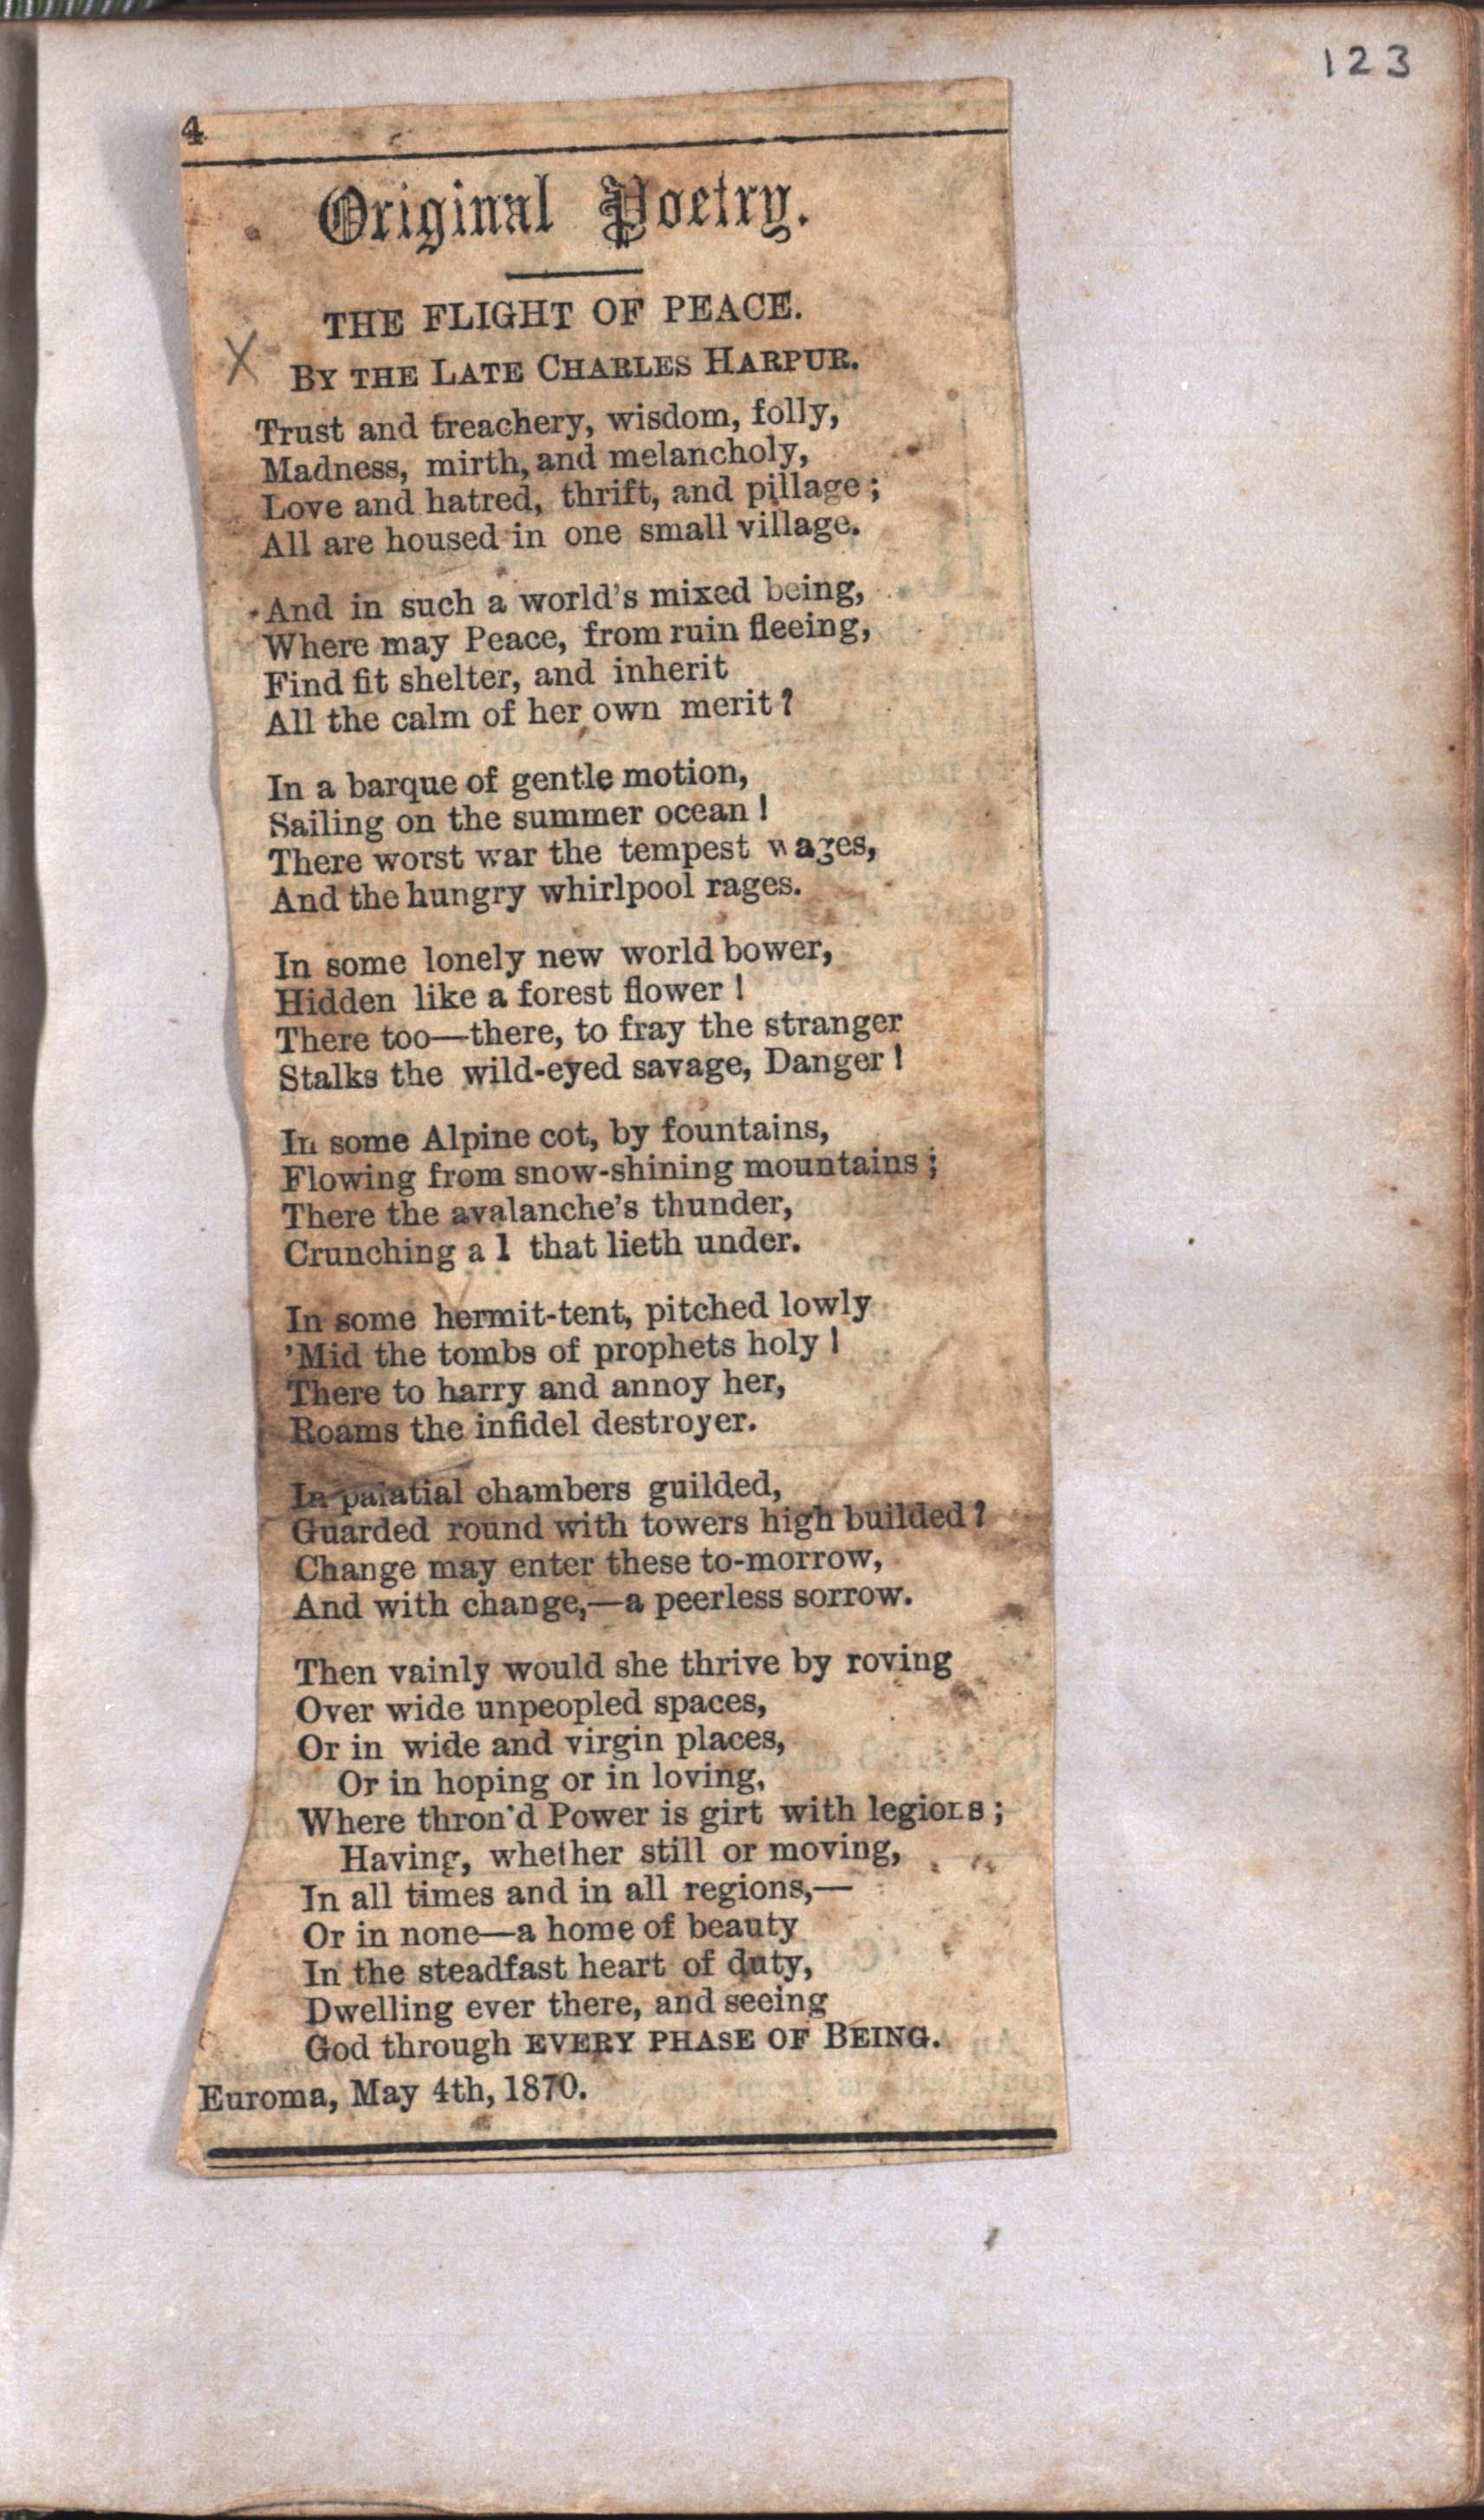 123
4
Original Poetry.
THE FLIGHT OF PEACE.
X
BY THE LATE CHARLES HARPUR.
Trust and treachery, wisdom, folly,
Madness, mirth, and melancholy,
Love and hatred, thrift, and pillage;
All are housed in one small village.
And in such a world's mixed being,
Where may Peace, from ruin fleeing,
Find fit shelter, and inherit
All the calm of her own merit?
In a barque of gentle motion,
Sailing on the summer ocean!
There worst war the tempest wages,
And the hungry whirlpool rages.
In some lonely new world bower,
Hidden like a forest flower!
There too—there, to fray the stranger
Stalks the wild-eyed savage, Danger!
In some Alpine cot, by fountains,
Flowing from snow-shining mountains;
There the avalanche's thunder,
Crunching a l that lieth under.
In some hermit-tent, pitched lowly
'Mid the tombs of prophets holy!
There to harry and annoy her,
Roams the infidel destroyer.
In palatial chambers guilded,
Guarded round with towers high builded?
Change may enter these to-morrow,
And with change,—a peerless sorrow.
Then vainly would she thrive by roving
Over wide unpeopled spaces,
Or in wide and virgin places,
Or in hoping or in loving,
Where thron'd Power is girt with legions;
Having, whether still or moving,
In all times and in all regions,—
Or in none—a home of beauty
In the steadfast heart of duty,
Dwelling ever there, and seeing
God through EVERY PHASE OF BEING.
Euroma, May 4th, 1870.